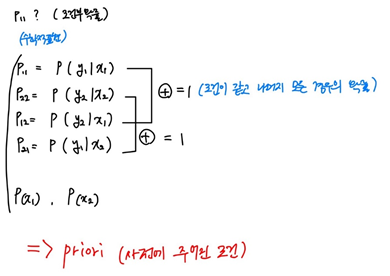 P₁₁ ? (조건부 확률)
(수학적표현)
P₁₁ = P(y₁|x₁)
P₂₂ = P(y₂|x₂)
P₁₂ = P(y₂|x₁)
P₂₁ = P(y₁|x₂)
⊕ = 1 (조건이 같고 나머지 모든 경우의 확률)
⊕ = 1
P(x₁) , P(x₂)
=> priori (사전에 주어진 조건)